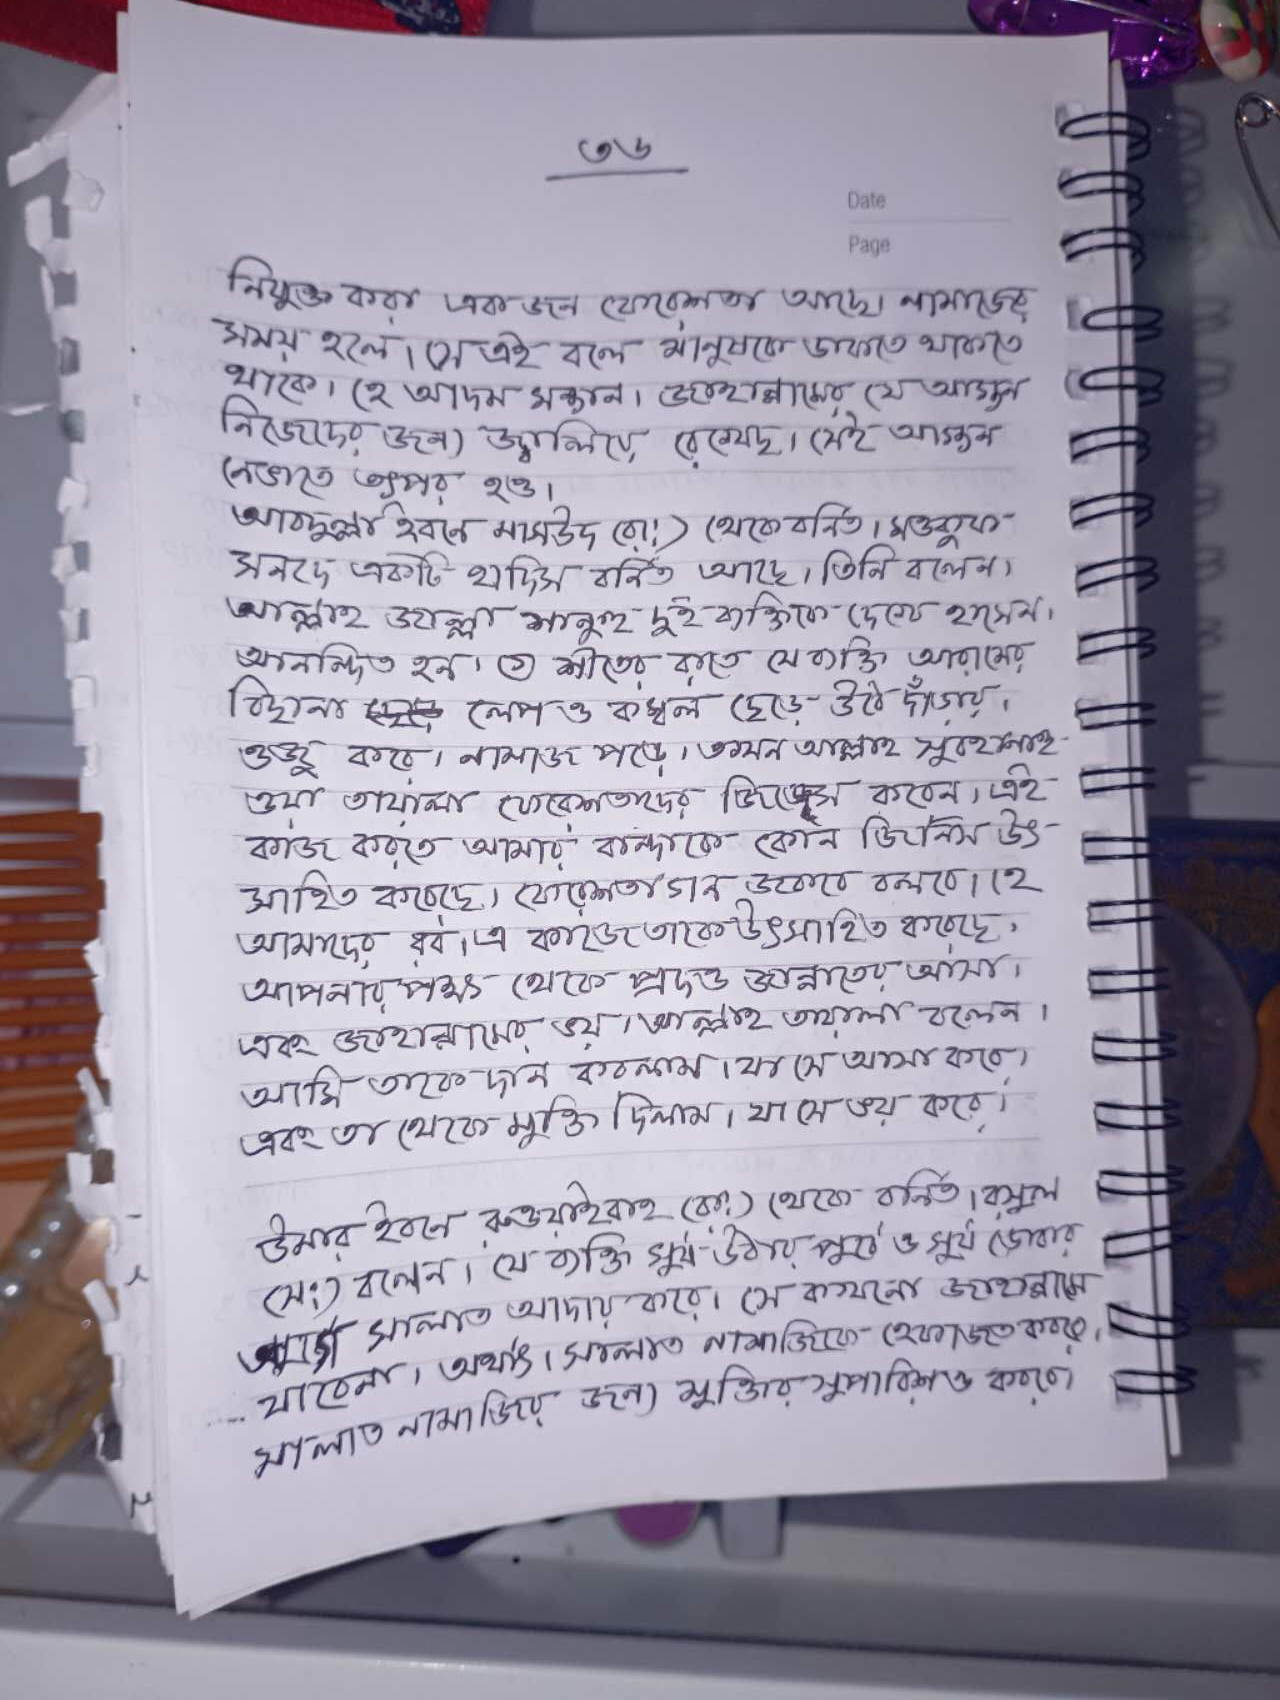 ৩৬
Date
Page
নিযুক্ত করা একজন ফেরেশতা আছে। নামাজের
সময় হলে। সে এই বলে মানুষকে ডাকতে থাকতে
থাকে। হে আদম সন্তান। জাহান্নামের যে আগুন
নিজেদের জন্য জ্বালিয়ে রেখেছ। সেই আগুন
নেভাতে তৎপর হও।
আবদুল্লা ইবনে মাসউদ (রা:) থেকে বর্নিত। মওকুফ
সনদে একটি হাদিস বর্নিত আছে। তিনি বলেন।
আল্লাহ জাল্লা শানুহু দুই ব্যক্তিকে দেখে হাসেন।
আনন্দিত হন। ১) শীতের রাতে যে ব্যক্তি আরামের
বিছানা লেপ ও কম্বল ছেড়ে উঠে দাঁড়ায়।
ওজু করে। নামাজ পড়ে। তখন আল্লাহ সুবহানাহু
ওয়া তায়ালা ফেরেশতাদের জিজ্ঞেস করেন। এই
কাজ করতে আমার বান্দাকে কোন জিনিস উৎ-
সাহিত করেছে। ফেরেশতাগন জবাবে বলবে। হে
আমাদের রব। এ কাজে তাকে উৎসাহিত করেছে।
আপনার পক্ষ থেকে প্রদত্ত জান্নাতের আসা।
এবং জাহান্নামের ভয়। আল্লাহ তায়ালা বলেন।
আমি তাকে দান করলাম। যা সে আসা করে।
এবং তা থেকে মুক্তি দিলাম। যা সে ভয় করে।
উমার ইবনে রুওয়াইবাহ (রা:) থেকে বর্নিত। রসুল
(স:) বলেন। যে ব্যক্তি সূর্য উঠার পূর্বে ও সূর্য ডোবার
আগে সালাত আদায় করে। সে কখনো জাহান্নামে
যাবেনা। অর্থাৎ। সালাত নামাজিকে হেফাজত করবে।
সালাত নামাজির জন্য মুক্তির সুপারিশও করবে।